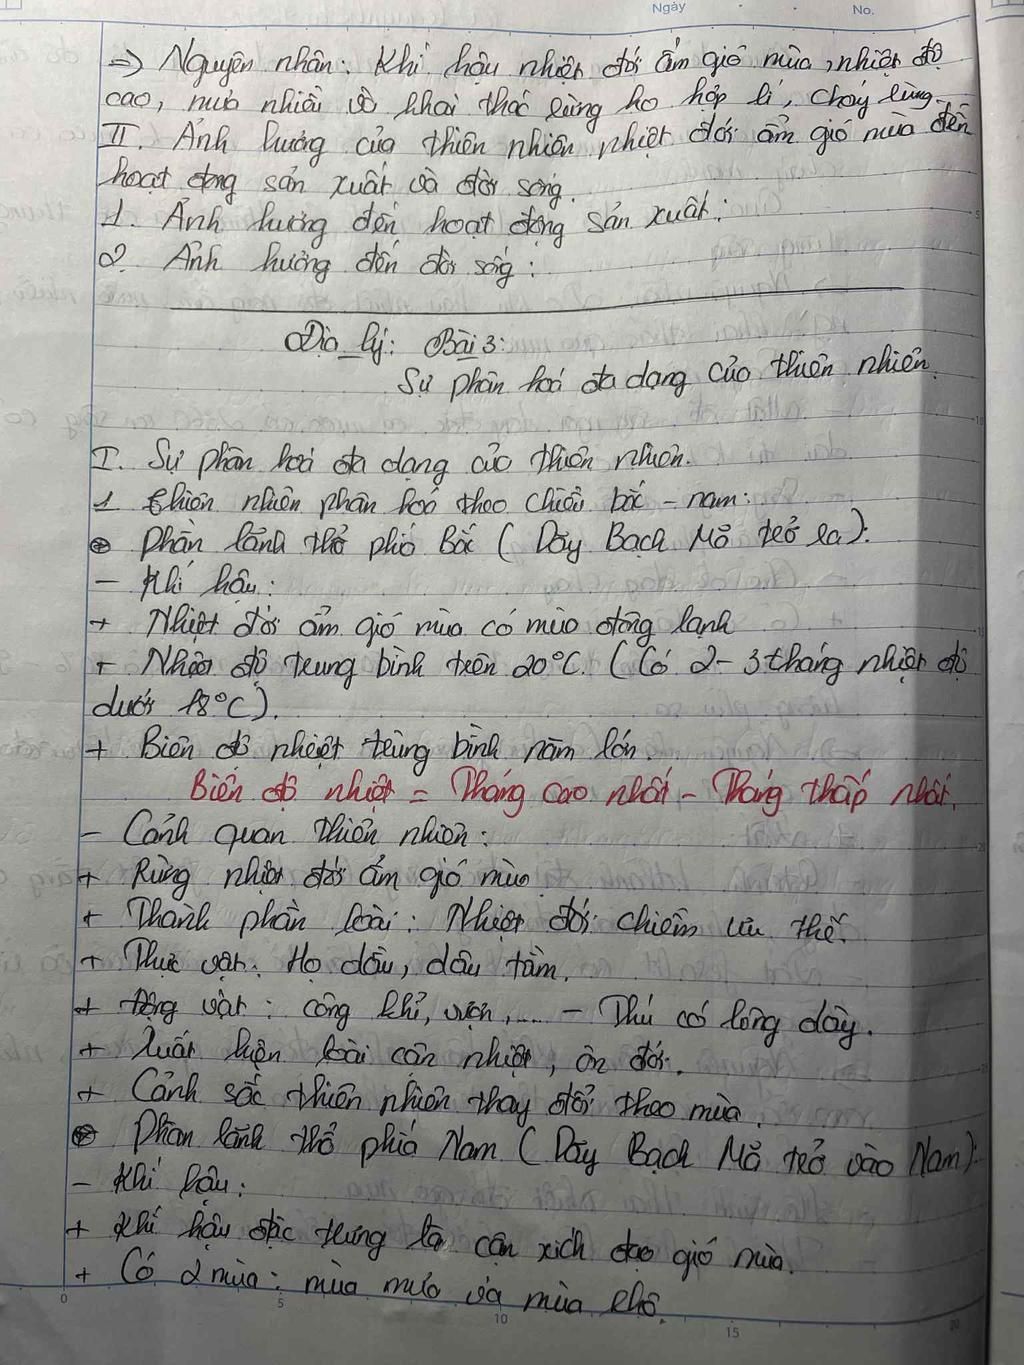 Ngày No.
=> Nguyên nhân: Khí hậu nhiệt đới ẩm gió mùa, nhiệt độ
cao, mưa nhiều và khai thác rừng ko hợp lí, cháy rừng.
II. Ảnh hưởng của thiên nhiên nhiệt đới ẩm gió mùa đến
hoạt động sản xuất và đời sống.
1. Ảnh hưởng đến hoạt động sản xuất:
2. Ảnh hưởng đến đời sống:
Địa lý: Bài 3:
Sự phân hoá đa dạng của thiên nhiên.
I. Sự phân hoá đa dạng của thiên nhiên.
1 Thiên nhiên phân hoá theo chiều bắc - nam:
⊛ Phần lãnh thổ phía Bắc (Dãy Bạch Mã trở ra):
- Khí hậu:
+ Nhiệt đới ẩm gió mùa có mùa đông lạnh
+ Nhiệt độ trung bình trên 20°C. (Có 2 - 3 tháng nhiệt độ
dưới 18°C).
+ Biên độ nhiệt trung bình năm lớn.
Biên độ nhiệt = Tháng cao nhất - Tháng thấp nhất.
- Cảnh quan thiên nhiên:
+ Rừng nhiệt đới ẩm gió mùa
+ Thành phần loài: Nhiệt đới chiếm ưu thế.
+ Thực vật: Họ dầu, dâu tằm.
+ Động vật: công khỉ, vượn,.... - Thú có lông dày.
+ Xuất hiện loài cận nhiệt, ôn đới.
+ Cảnh sắc thiên nhiên thay đổi theo mùa.
⊛ Phần lãnh thổ phía Nam (Dãy Bạch Mã trở vào Nam):
- Khí hậu:
+ Khí hậu đặc trưng là cận xích đạo gió mùa.
+ Có 2 mùa: mùa mưa và mùa khô.
0 5 10 15 20